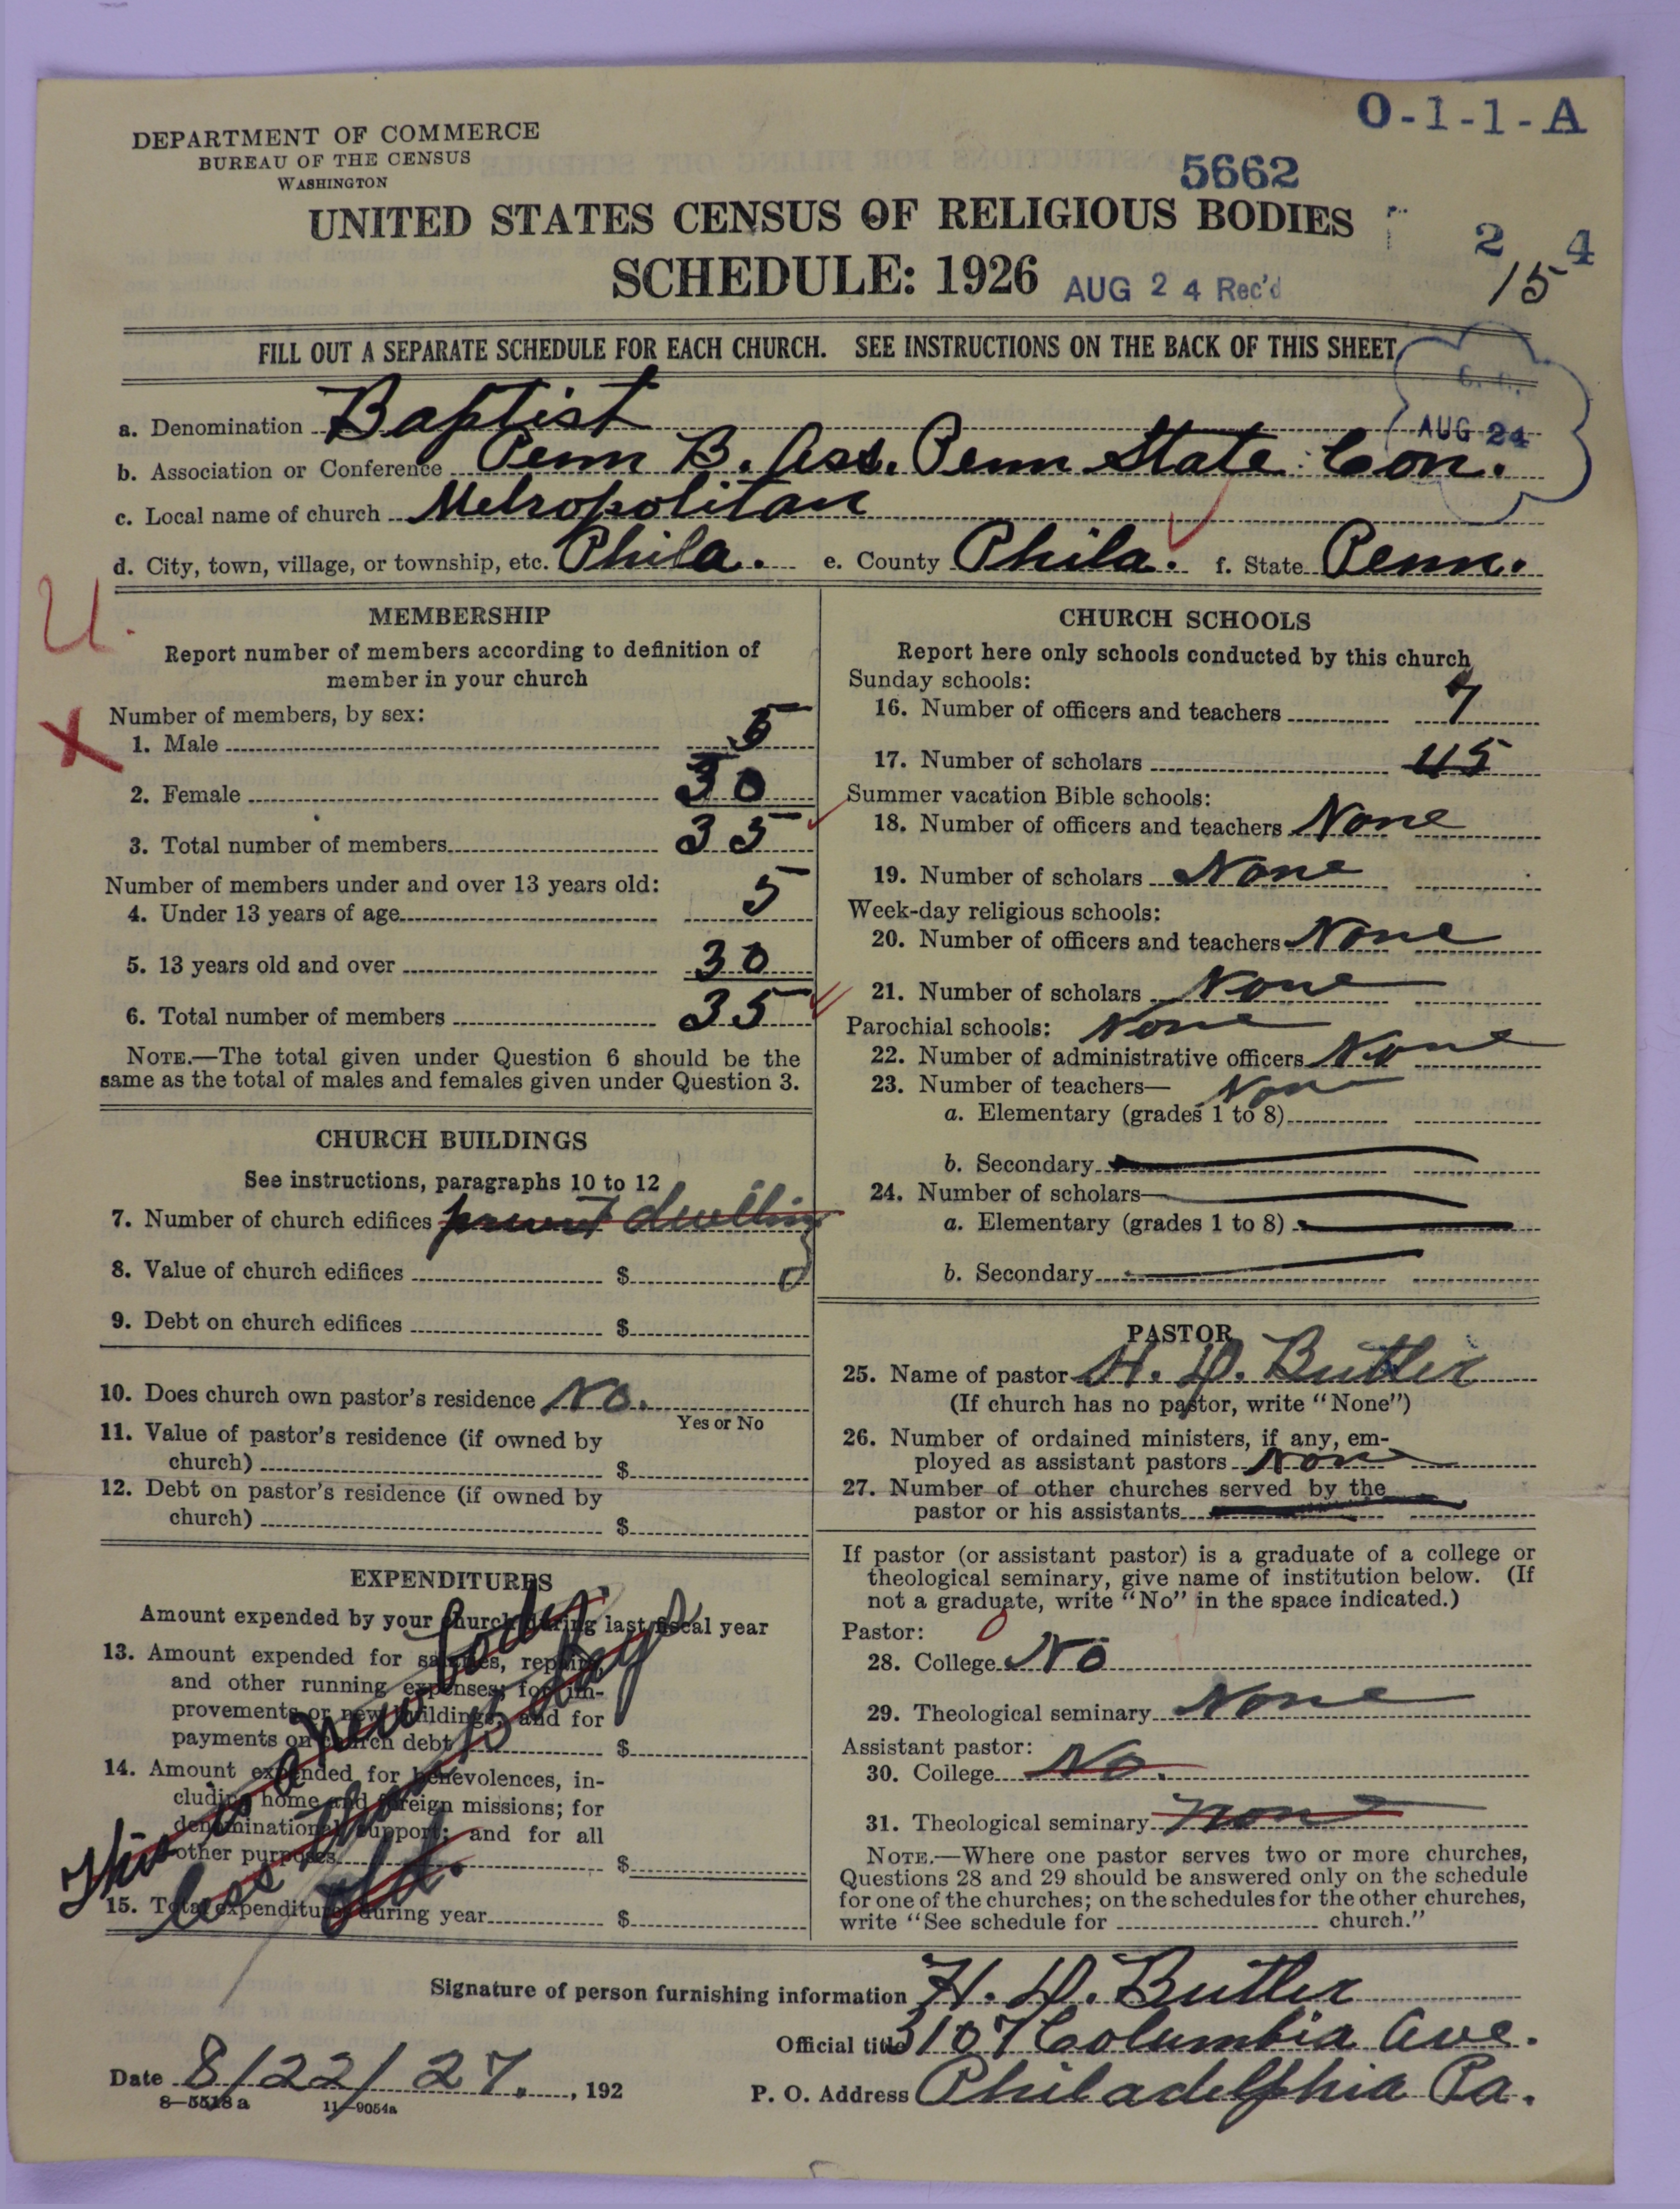 O-1-1-A
DEPARTMENT OF COMMERCE
BUREAU OF THE CENSUS
WASHINGTON
5662
UNITED STATES CENSUS OF RELIGIOUS BODIES
2 4
15
SCHEDULE: 1926 AUG 24 Rec'd
FILL OUT A SEPARATE SCHEDULE FOR EACH CHURCH. SEE INSTRUCTIONS ON THE BACK OF THIS SHEET
AUG 24
a. Denomination Baptist
b. Association or Conference Penn B. Ass. Penn State Con.
c. Local name of church Metropolitan
d. City, town, village, or township, etc. Phila. e. County Phila. f. State Penn.
U.
X
MEMBERSHIP
Report number of members according to definition of
member in your church
Number of members, by sex:
1. Male 5
2. Female 30
3. Total number of members 35
Number of members under and over 13 years old:
4. Under 13 years of age 5
5. 13 years old and over 30
6. Total number of members 35
NOTE.—The total given under Question 6 should be the
same as the total of males and females given under Question 3.
CHURCH BUILDINGS
See instructions, paragraphs 10 to 12
7. Number of church edifices dwelling
8. Value of church edifices $ 0
9. Debt on church edifices $
10. Does church own pastor's residence No.
Yes or No
11. Value of pastor's residence (if owned by
church) $
12. Debt on pastor's residence (if owned by
church) $
EXPENDITURES
Amount expended by your church during last fiscal year
13. Amount expended for salaries, repairs,
and other running expenses; for im-
provements or new buildings; and for
payments on church debt $
14. Amount expended for benevolences, in-
cluding home and foreign missions; for
denominational support; and for all
other purposes $
15. Total expenditures during year $
This is a new body
less than 15 days
old.
CHURCH SCHOOLS
Report here only schools conducted by this church
Sunday schools:
16. Number of officers and teachers 7
17. Number of scholars 45
Summer vacation Bible schools:
18. Number of officers and teachers None
19. Number of scholars None
Week-day religious schools:
20. Number of officers and teachers None
21. Number of scholars None
Parochial schools: None
22. Number of administrative officers None
23. Number of teachers— Non
a. Elementary (grades 1 to 8)
b. Secondary
24. Number of scholars—
a. Elementary (grades 1 to 8)
b. Secondary
PASTOR
25. Name of pastor H. D. Butler
(If church has no pastor, write "None")
26. Number of ordained ministers, if any, em-
ployed as assistant pastors Non
27. Number of other churches served by the
pastor or his assistants
If pastor (or assistant pastor) is a graduate of a college or
theological seminary, give name of institution below. (If
not a graduate, write "No" in the space indicated.)
Pastor: 0
28. College No
29. Theological seminary None
Assistant pastor:
30. College No.
31. Theological seminary None
NOTE.—Where one pastor serves two or more churches,
Questions 28 and 29 should be answered only on the schedule
for one of the churches; on the schedules for the other churches,
write "See schedule for church."
Signature of person furnishing information H. D. Butler
Official title 3107 Columbia Ave.
Date 8/22/27. , 192 P. O. Address Philadelphia Pa.
8—5518a 11—9054a